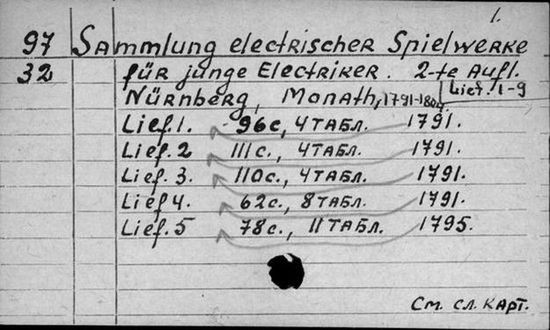 1.
97 Sammlung electrischer Spielwerke
32 für junge Electriker. 2-te Aufl.
Nürnberg, Monath, 1791-1804. Lief. 1-9
Lief. 1. 96с, 4 табл. 1791.
Lief. 2 111с., 4 табл. 1791.
Lief. 3. 110с., 4 табл. 1791.
Lief 4. 62с., 8 табл. 1791.
Lief. 5 78с., 11 табл. 1795.
См. сл. карт.